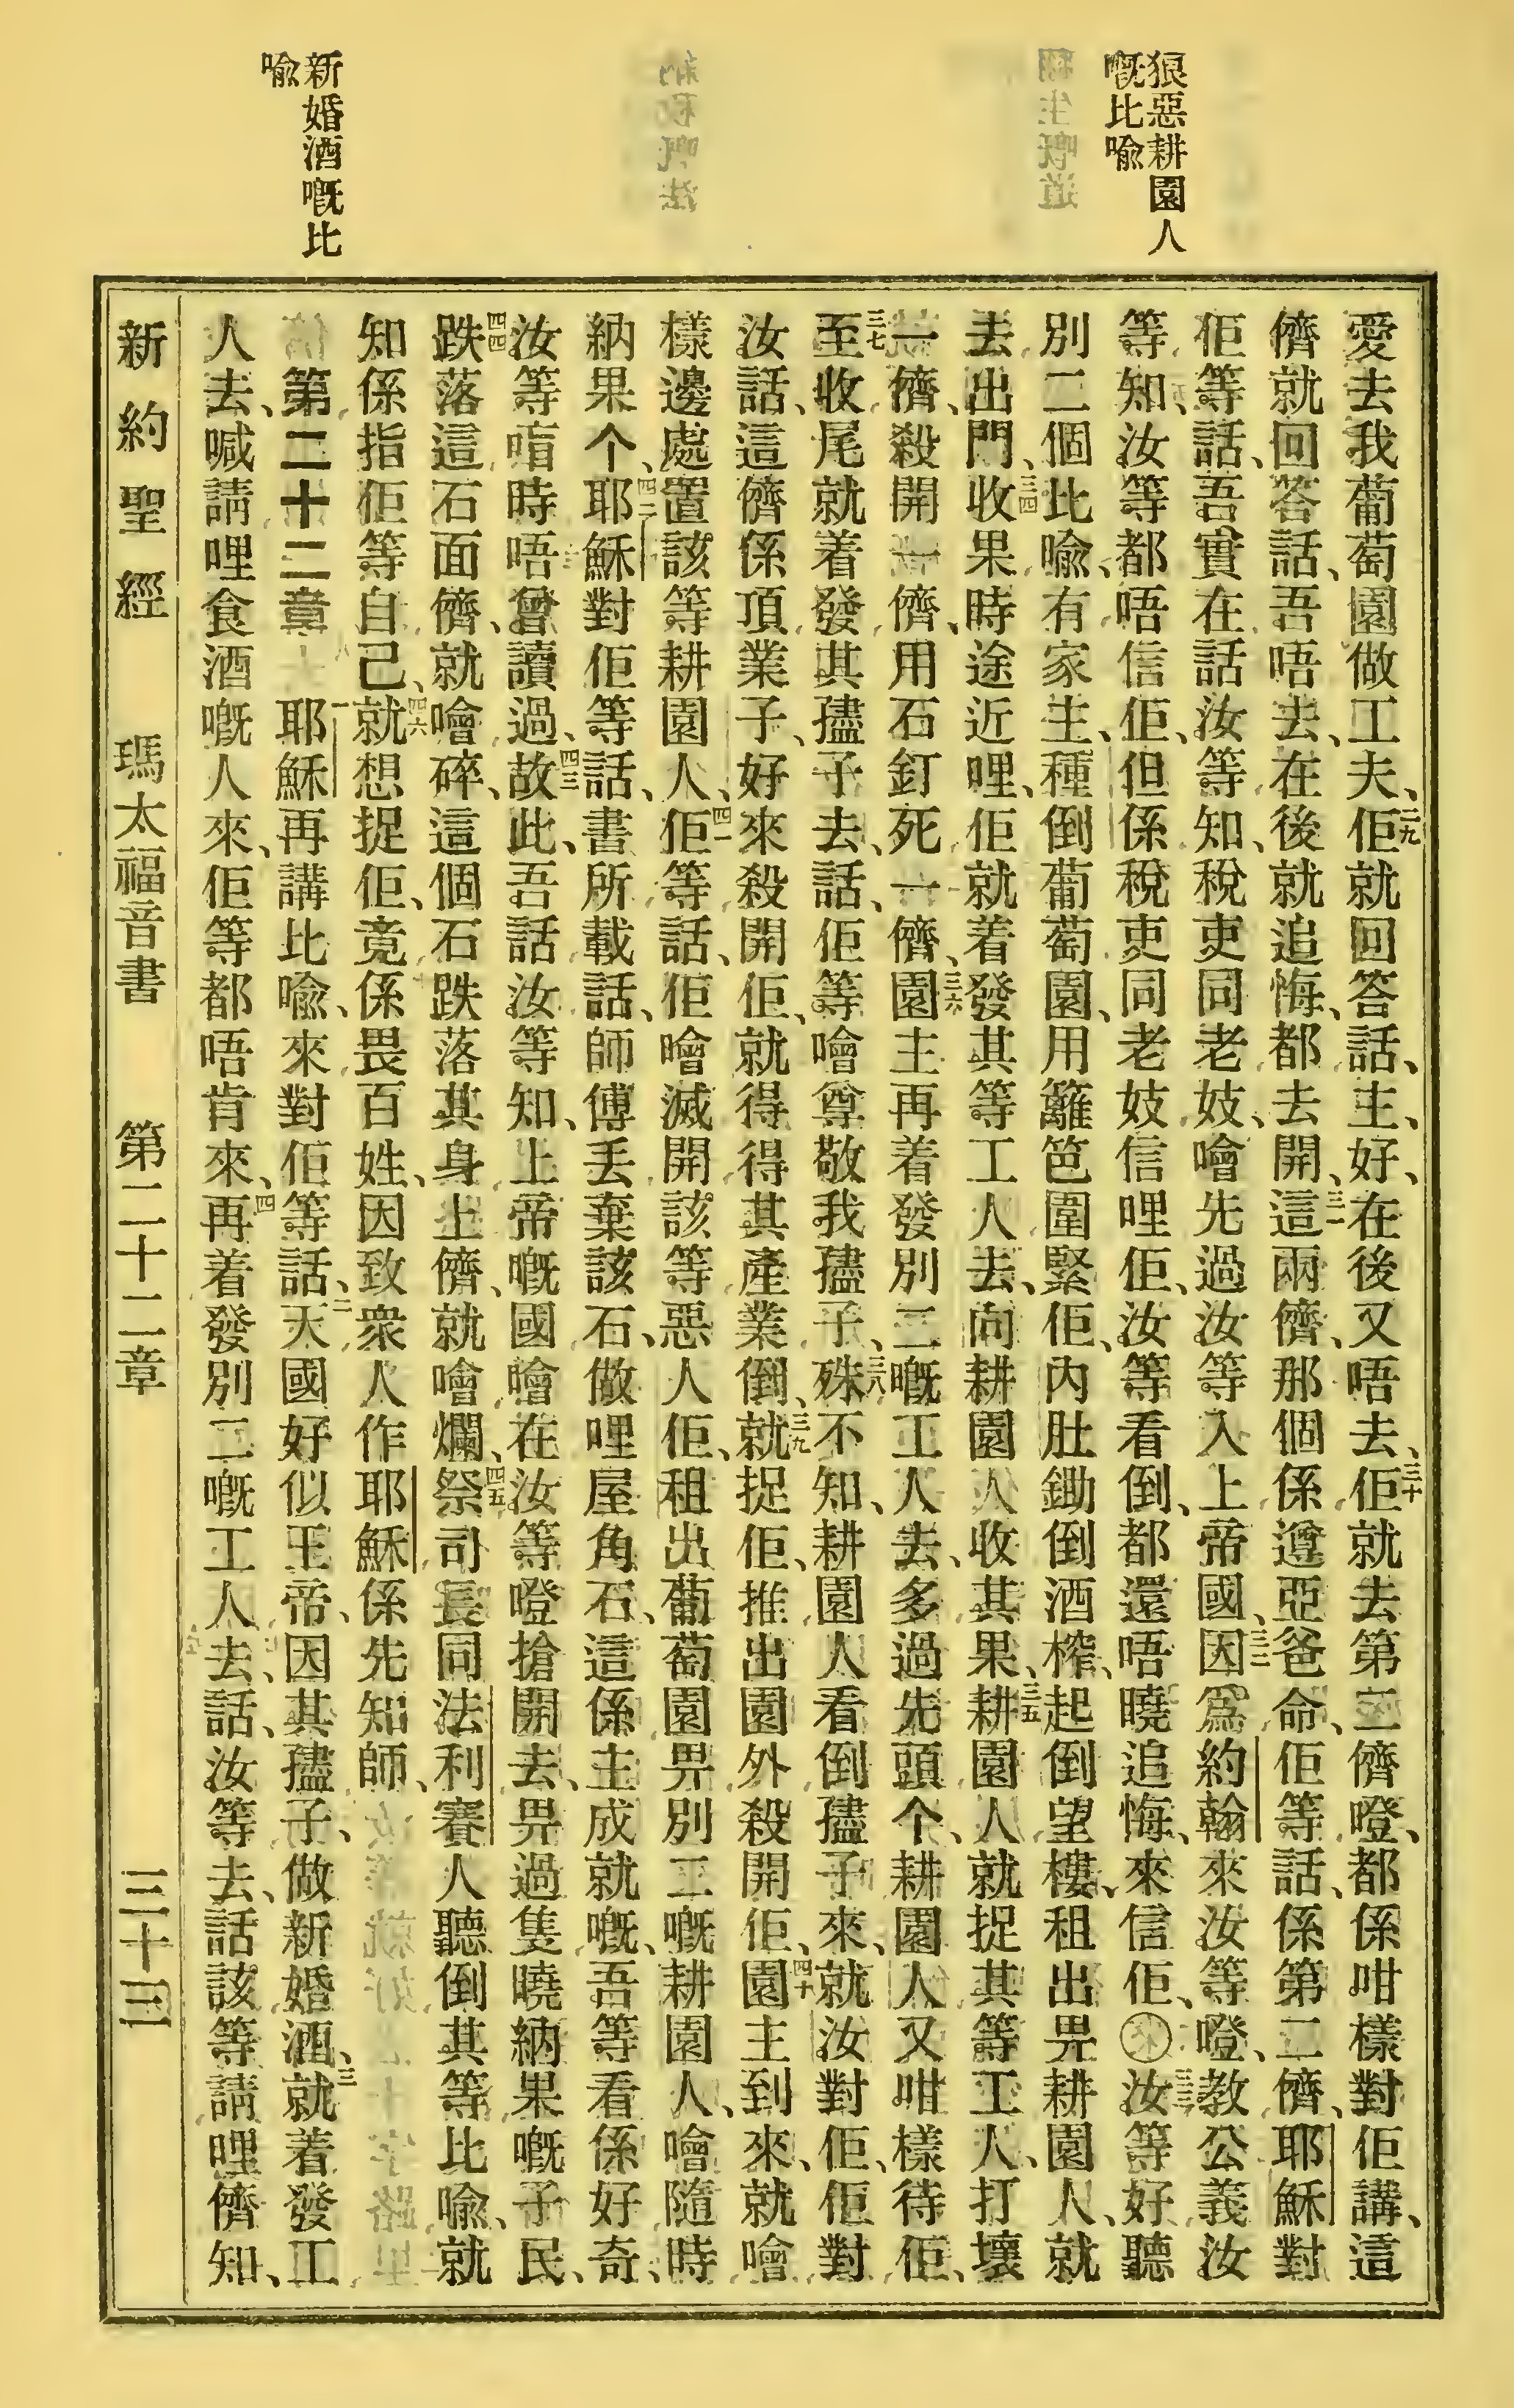 狼惡耕園人
嘅比喻
新婚酒嘅比
喻
愛去我葡萄園做工夫、二九佢就回答話、主、好、在後又唔去、三十佢就去第二儕噔、都係咁樣對佢講、這
儕就回答話、吾唔去、在後就追悔、都去開、三一這兩儕、那個係遵亞爸命、佢等話、係第二儕、耶穌對
佢等話、吾實在話汝等知、稅吏同老妓、噲先過汝等入上帝國、三二因爲約翰來汝等噔、教公義汝
等知、汝等都唔信佢、但係稅吏同老妓信哩佢、汝等看倒、都還唔曉追悔、來信佢、三三汝等好聽
別二個比喻、有家主、種倒葡萄園、用籬笆圍緊佢、內肚鋤倒酒榨、起倒望樓、租出畀耕園人、就
去出門、三四收果時途近哩、佢就着發其等工人去、向耕園人收其果、三五耕園人就捉其等工人、打壞
一儕、殺開一儕、用石釘死一儕、三六園主再着發別二嘅工人去、多過先頭个、耕園人又咁樣待佢、
三七至收尾就着發其孻子去、話、佢等噲尊敬我孻子、三八殊不知、耕園人看倒孻子來、就汝對佢、佢對
汝話、這儕係項業子、好來殺開佢、就得得其產業倒、三九就捉佢、推出園外殺開佢、四十園主到來、就噲
樣邊處置該等耕園人、四一佢等話、佢噲滅開該等惡人佢、租出葡萄園畀別二嘅耕園人、噲隨時
納果个、四二耶穌對佢等話、書所載話、師傅丟棄該石、做哩屋角石、這係主成就嘅、吾等看係好奇、
汝等唔時唔曾讀過、四三故此、吾話汝等知、上帝嘅國噲在汝等噔搶開去、畀過隻曉納果嘅子民、
四四跌落這石面儕、就噲碎、這個石跌落其身上儕、就噲爛、四五祭司長同法利賽人聽倒其等比喻、就
知係指佢等自己、四六就想捉佢、竟係畏百姓、因致衆人作耶穌係先知師、
第二十二章 一耶穌再講比喻、來對佢等話、二天國好似王帝、因其孻子、做新婚酒、三就着發工
人去、喊請哩食酒嘅人來、佢等都唔肯來、四再着發別二嘅工人去、話、汝等去、話該等請哩儕知、
新約聖經 瑪太福音書 第二十二章 三十三